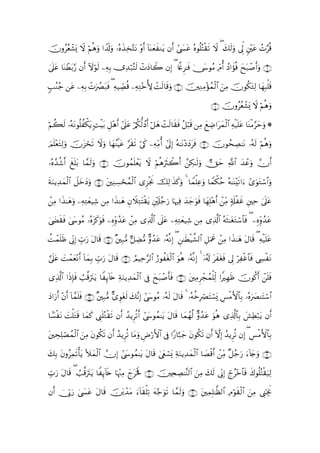 قُرَّتُ عَيْنٍ لِّي وَلَكَ ۖ لَا تَقْتُلُوهُ عَسَىٰ أَن يَنفَعَنَا أَوْ نَتَّخِذَهُۥ وَلَدًا وَهُمْ لَا يَشْعُرُونَ ﴿٩﴾
وَأَصْبَحَ فُؤَادُ أُمِّ مُوسَىٰ فَٰرِغًا ۖ إِن كَادَتْ لَتُبْدِي بِهِۦ لَوْلَا أَن رَّبَطْنَا عَلَىٰ
قَلْبِهَا لِتَكُونَ مِنَ ٱلْمُؤْمِنِينَ ﴿١٠﴾ وَقَالَتْ لِأُخْتِهِۦ قُصِّيهِ ۖ فَبَصُرَتْ بِهِۦ عَن جُنُبٍ
وَهُمْ لَا يَشْعُرُونَ ﴿١١﴾
۞ وَحَرَّمْنَا عَلَيْهِ ٱلْمَرَاضِعَ مِن قَبْلُ فَقَالَتْ هَلْ أَدُلُّكُمْ عَلَىٰ أَهْلِ بَيْتٍ يَكْفُلُونَهُۥ لَكُمْ
وَهُمْ لَهُۥ نَٰصِحُونَ ﴿١٢﴾ فَرَدَدْنَٰهُ إِلَىٰ أُمِّهِۦ كَيْ تَقَرَّ عَيْنُهَا وَلَا تَحْزَنَ وَلِتَعْلَمَ
أَنَّ وَعْدَ ٱللَّهِ حَقٌّ وَلَٰكِنَّ أَكْثَرَهُمْ لَا يَعْلَمُونَ ﴿١٣﴾ وَلَمَّا بَلَغَ أَشُدَّهُۥ
وَٱسْتَوَىٰ ءَاتَيْنَٰهُ حُكْمًا وَعِلْمًا ۚ وَكَذَٰلِكَ نَجْزِي ٱلْمُحْسِنِينَ ﴿١٤﴾ وَدَخَلَ ٱلْمَدِينَةَ
عَلَىٰ حِينِ غَفْلَةٍ مِّنْ أَهْلِهَا فَوَجَدَ فِيهَا رَجُلَيْنِ يَقْتَتِلَانِ هَٰذَا مِن شِيعَتِهِۦ وَهَٰذَا مِنْ
عَدُوِّهِۦ ۖ فَٱسْتَغَٰثَهُ ٱلَّذِي مِن شِيعَتِهِۦ عَلَى ٱلَّذِي مِنْ عَدُوِّهِۦ فَوَكَزَهُۥ مُوسَىٰ فَقَضَىٰ
عَلَيْهِ ۖ قَالَ هَٰذَا مِنْ عَمَلِ ٱلشَّيْطَٰنِ ۖ إِنَّهُۥ عَدُوٌّ مُّضِلٌّ مُّبِينٌ ﴿١٥﴾ قَالَ رَبِّ إِنِّي ظَلَمْتُ
نَفْسِي فَٱغْفِرْ لِي فَغَفَرَ لَهُۥ ۚ إِنَّهُۥ هُوَ ٱلْغَفُورُ ٱلرَّحِيمُ ﴿١٦﴾ قَالَ رَبِّ بِمَا أَنْعَمْتَ عَلَيَّ
فَلَنْ أَكُونَ ظَهِيرًا لِّلْمُجْرِمِينَ ﴿١٧﴾ فَأَصْبَحَ فِي ٱلْمَدِينَةِ خَائِفًا يَتَرَقَّبُ فَإِذَا ٱلَّذِي
ٱسْتَنصَرَهُۥ بِٱلْأَمْسِ يَسْتَصْرِخُهُۥ ۚ قَالَ لَهُۥ مُوسَىٰ إِنَّكَ لَغَوِيٌّ مُّبِينٌ ﴿١٨﴾ فَلَمَّا أَنْ أَرَادَ
أَن يَبْطِشَ بِٱلَّذِي هُوَ عَدُوٌّ لَّهُمَا قَالَ يَٰمُوسَىٰ أَتُرِيدُ أَن تَقْتُلَنِي كَمَا قَتَلْتَ نَفْسًا
بِٱلْأَمْسِ ۖ إِن تُرِيدُ إِلَّا أَن تَكُونَ جَبَّارًا فِي ٱلْأَرْضِ وَمَا تُرِيدُ أَن تَكُونَ مِنَ ٱلْمُصْلِحِينَ
﴿١٩﴾ وَجَاءَ رَجُلٌ مِّنْ أَقْصَا ٱلْمَدِينَةِ يَسْعَىٰ قَالَ يَٰمُوسَىٰ إِنَّ ٱلْمَلَأَ يَأْتَمِرُونَ بِكَ
لِيَقْتُلُوكَ فَٱخْرُجْ إِنِّي لَكَ مِنَ ٱلنَّٰصِحِينَ ﴿٢٠﴾ فَخَرَجَ مِنْهَا خَائِفًا يَتَرَقَّبُ ۖ قَالَ رَبِّ
نَجِّنِي مِنَ ٱلْقَوْمِ ٱلظَّٰلِمِينَ ﴿٢١﴾ وَلَمَّا تَوَجَّهَ تِلْقَاءَ مَدْيَنَ قَالَ عَسَىٰ رَبِّي أَن